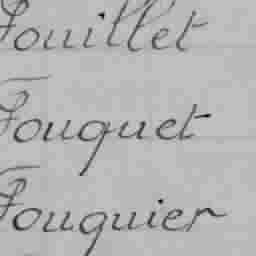 Fouillet
Fouquet
Fouquier